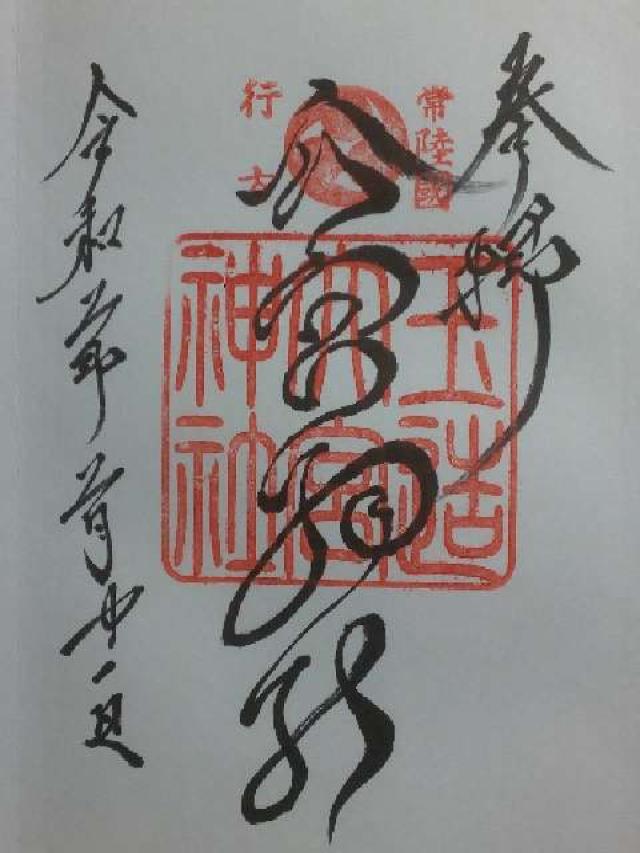 奉拝
常陸國
行方
玉造
大宮
神社
大宮神社
令和二年二月廿一日